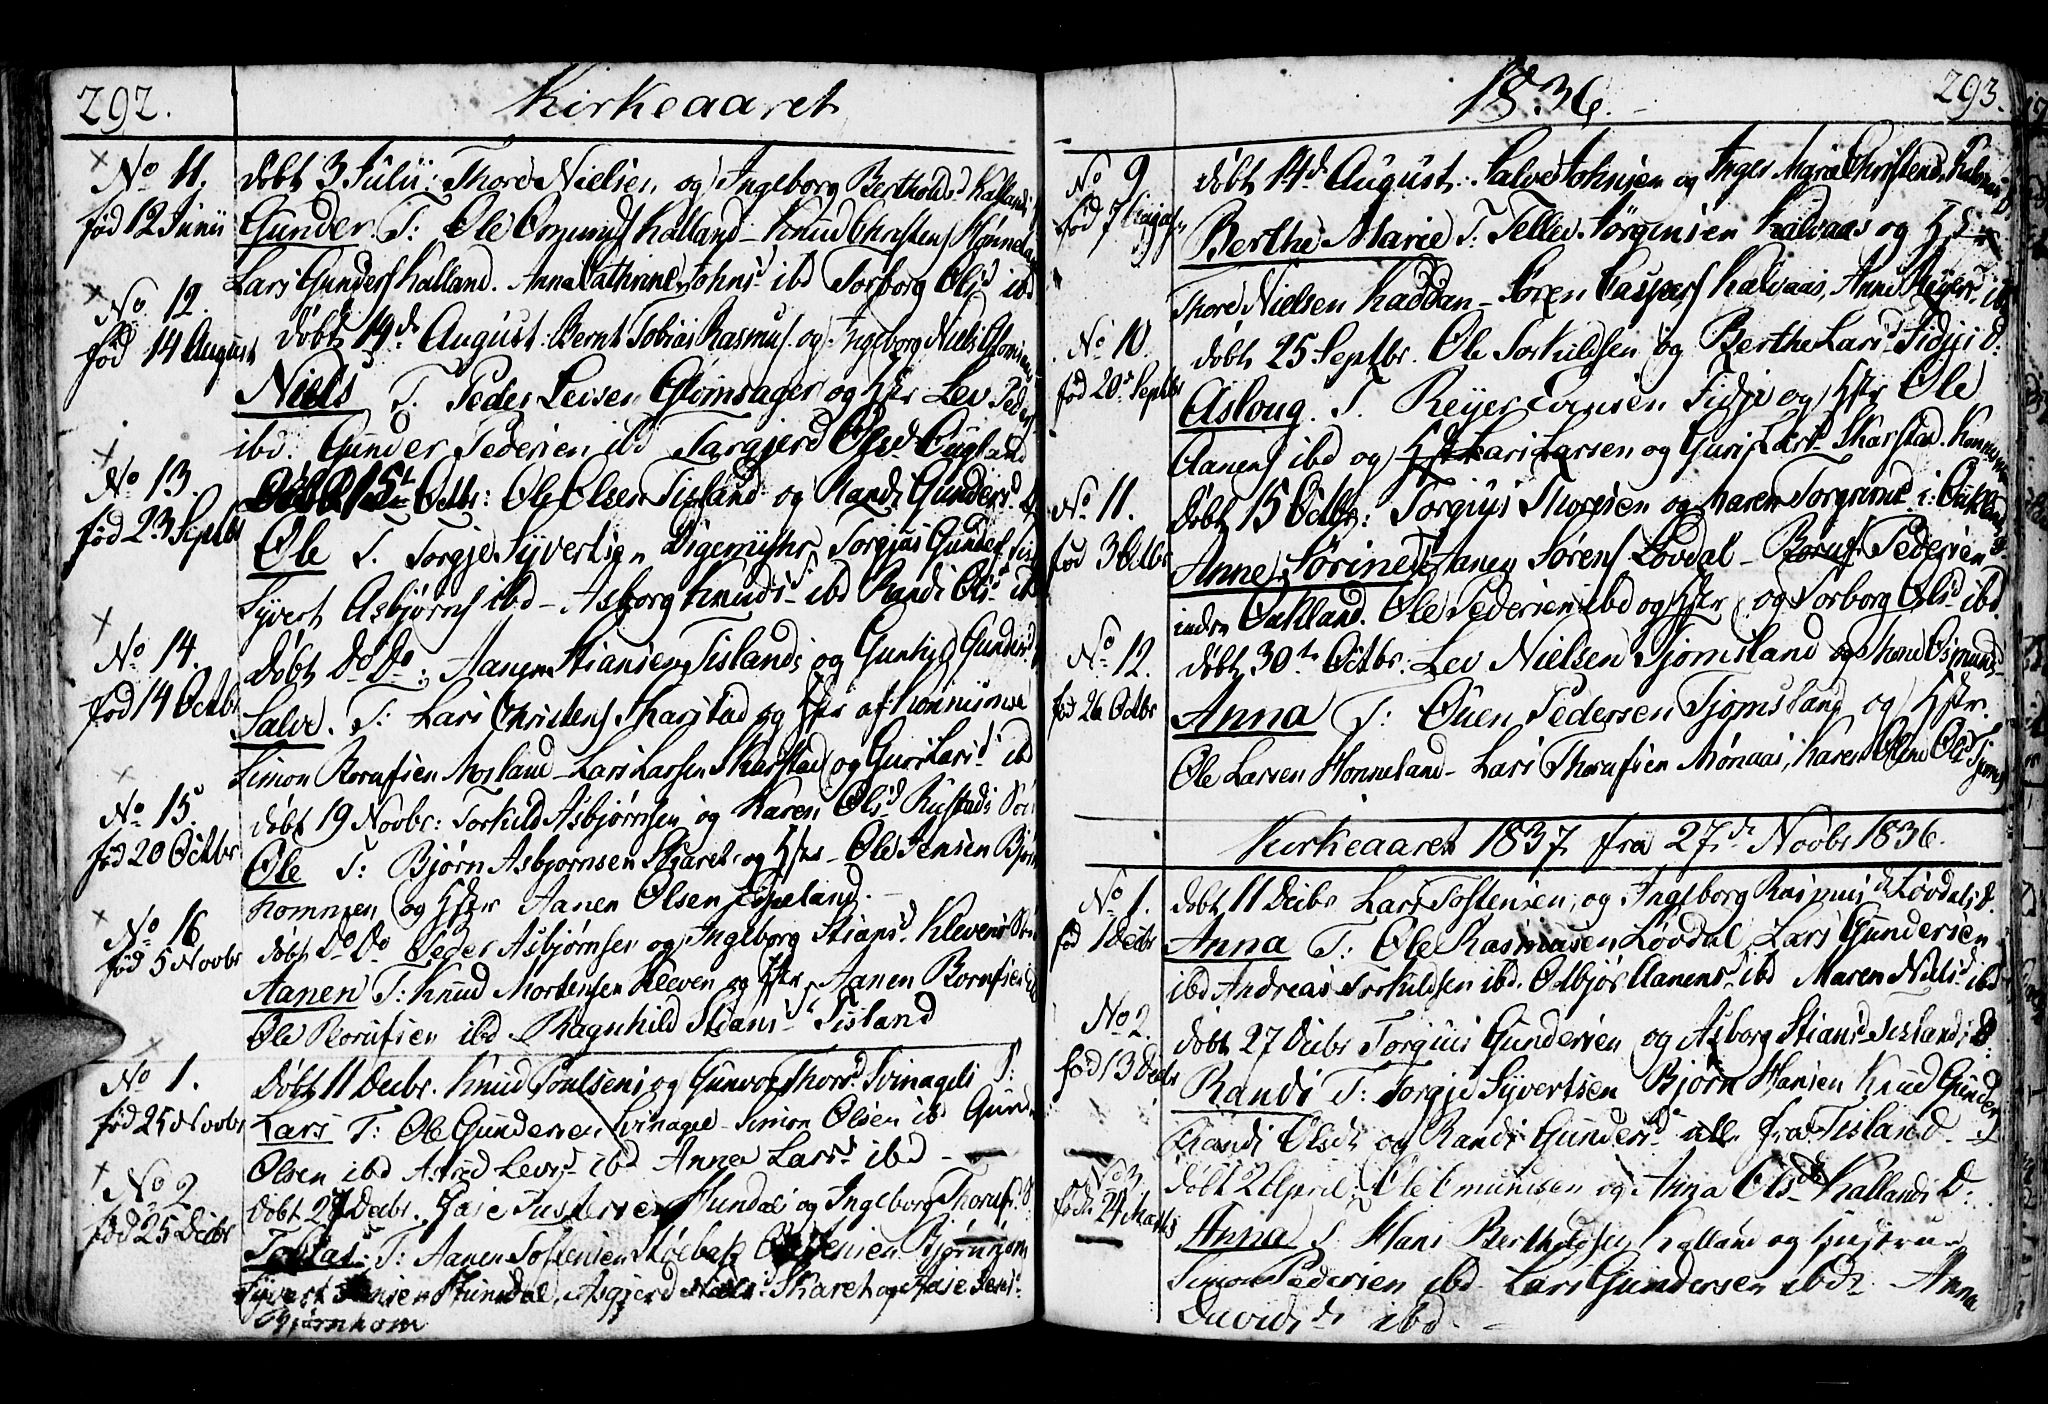 292.
Kirkeaaret
No 11.
fød 12 Junii
døbt 3 Julii: Thore Nielsen og Ingeborg Bertholdsd Kallands
Gunder T: Ole Omunds Kalland - Knud Christens
Lars Gunders Kalland. Anna Cathrine Johnsd ibd Torborg Olsd ibd
No. 12.
fød 14 August
døbt 14d August: Bernt Tobias Rasmus. og Ingeborg Niels
Niels T. Peder Levsen Glomsager og Hstr Lev Peders
ibd. Gunder Pedersen ibd Targjerd Olsd Øugland
No 13.
fød 23 Septbr
Døbt 15t Octbr: Ole Olsen Tisland og Randi Gundersd
Ole T. Torgje Syvertsen Digemyhr Torgius Gunders
Syvert Asbjørns ibd - Asborg Knudsd ibd Randi Olsd ibd
No 14.
fød 14 Octbr
døbt Do Do: Aanen Stiansen Tislands og Gunhild Gundersd
Salve. T: Lars Christens Skarstad og Hstr af Konnismoe
Simon Rorufsen Mosland - Lars Larsen Skarstad og Guri Larsd ibd
No 15.
fød 20 Octbr
døbt 19 Novbr: Torkild Asbjørnsen og Karen Olsd Rustads
Ole T: Bjørn Asbjørnsen Skjaret og Hstr - Ole Jensen
og Hstr Aanen Olsen
No 16
fød 5 Novbr
døbt Do Do Peder Asbjørnsen og Ingeborg Stiansd Klevens
Aanen T: Knud Mortensen Kleven og Hstr Aanen Rorufsen
Ole Rorufsen ibd - Ragnhild Stiansd Tisland
No 1.
fød 25 Novbr
Døbt 11 Decbr. Knud Poulsens og Gunvor Thorsd Svinagels S:
Lars T: Ole Gundersen Svinagel - Simon Olsen ibd
Olsen ibd Astrid Levsd ibd Anna Larsd ibd -
No 2
fød 25 Decbr
døbt 27 Decbr. Hundal og Ingeborg Thorufsd S
Tobias: T: Aanen Tostensen Støebak Jensen Bjørnhom
Syvert Jensen Hundal, Asgjerd Nielsd Skaret og Aase Jensd
Bjørnhom
1836.
293.
No 9
fød 7 August
døbt 14d August: Salve Johnsen og Inger Maria Christensd Kalvaas D
Berthe Marie T: Tellev Jørgensen Kalvaas og Hstr
Thore Nielsen Kaddan - Søren Caspers Kalvaas, Anne ibd
No 10.
fød 20d Septbr
døbt 25 Septbr. Ole Torkildsen og Berthe Larsd Tidjes D:
Asloug. T. Reyer Evensen Tidje og Hstr Ole
Aanens ibd og Hstr Lars Larsen og Guri Larsd Skarstad.
No 11.
fød 3 Octbr
døbt 15 Octbr: Torgius Thorsen og Karen Torgrimsd i: Øukland D.
Anne Sørine T: Aanen Sørens Løvdal - Roruf Pedersen
indre Øukland. Ole Pedersen ibd og Hstr og Torborg Olsd ibd
No 12.
fød 26 Octbr
døbt 30te Octbr: Lev Nielsen Tjomsland og Anne Osmundsd
Anna T: Ouen Pedersen Tjomsland og Hstr.
Ole Larsen Honneland - Lars Thorufsen Mønaas, Karen Oline Olsd
Kirkeaaret 1837 fra 27de Novbr 1836.
No 1.
fød 1 Decbr
døbt 11 Decbr Lars Tostensen, og Ingeborg Rasmusd Løvdals D.
Anna T: Ole Rasmusen Løvdal, Lars Gundersen
ibd Andreas Torkildsen ibd. Odbjør Aanensd ibd Maren Nielsd ibd
No 2.
fød 13 Decbr
døbt 27 Decbr Torgius Gundersen og Asborg Stiansd Tislands D:
Randi T: Torgje Syvertsen Bjørn Hansen Knud Gunders
Randi Olsd og Randi Gundersd alle fra Tisland -
No 3
fød 24 Martii
døbt 2 April: Ole Omundsen og Anna Olsd Kallands D:
Anna T Hans Bertholdsen Kalland og Hustrue
Simon Pedersen ibd - Lars Gundersen ibd Anna
Davids d ibd -